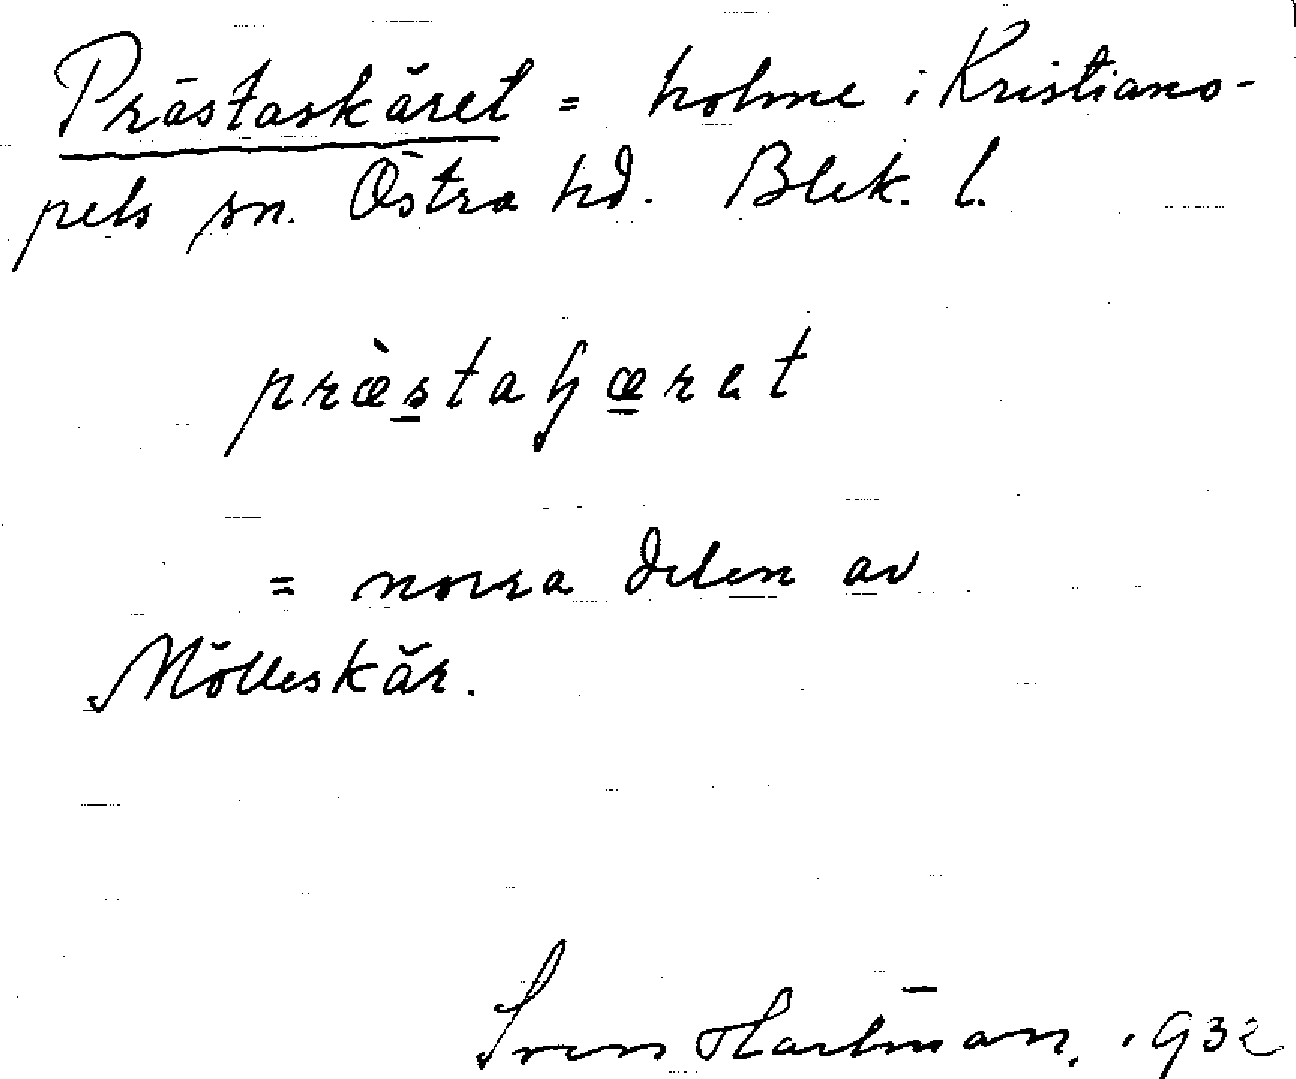 Prästaskäret = holme i Kristiano-
pels sn. Östra hd. Blek. l.
præ̀staɧæret
= norra delen av
Mölleskär.
Sven Hartman, 1932